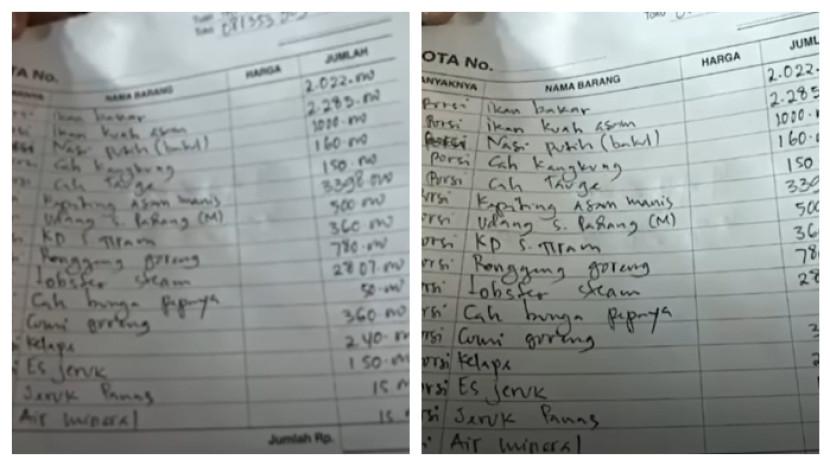 081353
TA No.
NAMA BARANG HARGA JUMLAH
ikan bakar 2.022.000
ikan kuah asam 2.285.000
Nasi putih (bakul) 1000.000
Cah kangkung 160.000
Cah Tauge 150.000
Kepiting Asam manis 3398.000
Udang s. Padang (M) 500.000
KP S. Tiram 360.000
Ronggeng goreng 780.000
Lobster steam 2807.000
Cah bunga pepaya 50.000
Cumi goreng 360.000
Kelapa 240.
Es Jeruk 150.
Jeruk Panas 15
Air mineral 15
Jumlah Rp.
OTA No.
ANYAKNYA NAMA BARANG HARGA JUML
Porsi ikan bakar 2.022.
Porsi ikan kuah asam 2.285
Porsi Nasi putih (bakul) 1000.
Porsi Cah kangkung 160.
Porsi Cah Tauge 150
orsi Kepiting Asam manis 339
orsi Udang s. Padang (M) 500
orsi KP S. Tiram 36
orsi Ronggeng goreng 78
orsi Lobster steam 28
rsi Cah bunga pepaya
rsi Cumi goreng 3
orsi Kelapa 2
orsi Es Jeruk
si Jeruk Panas
Air mineral